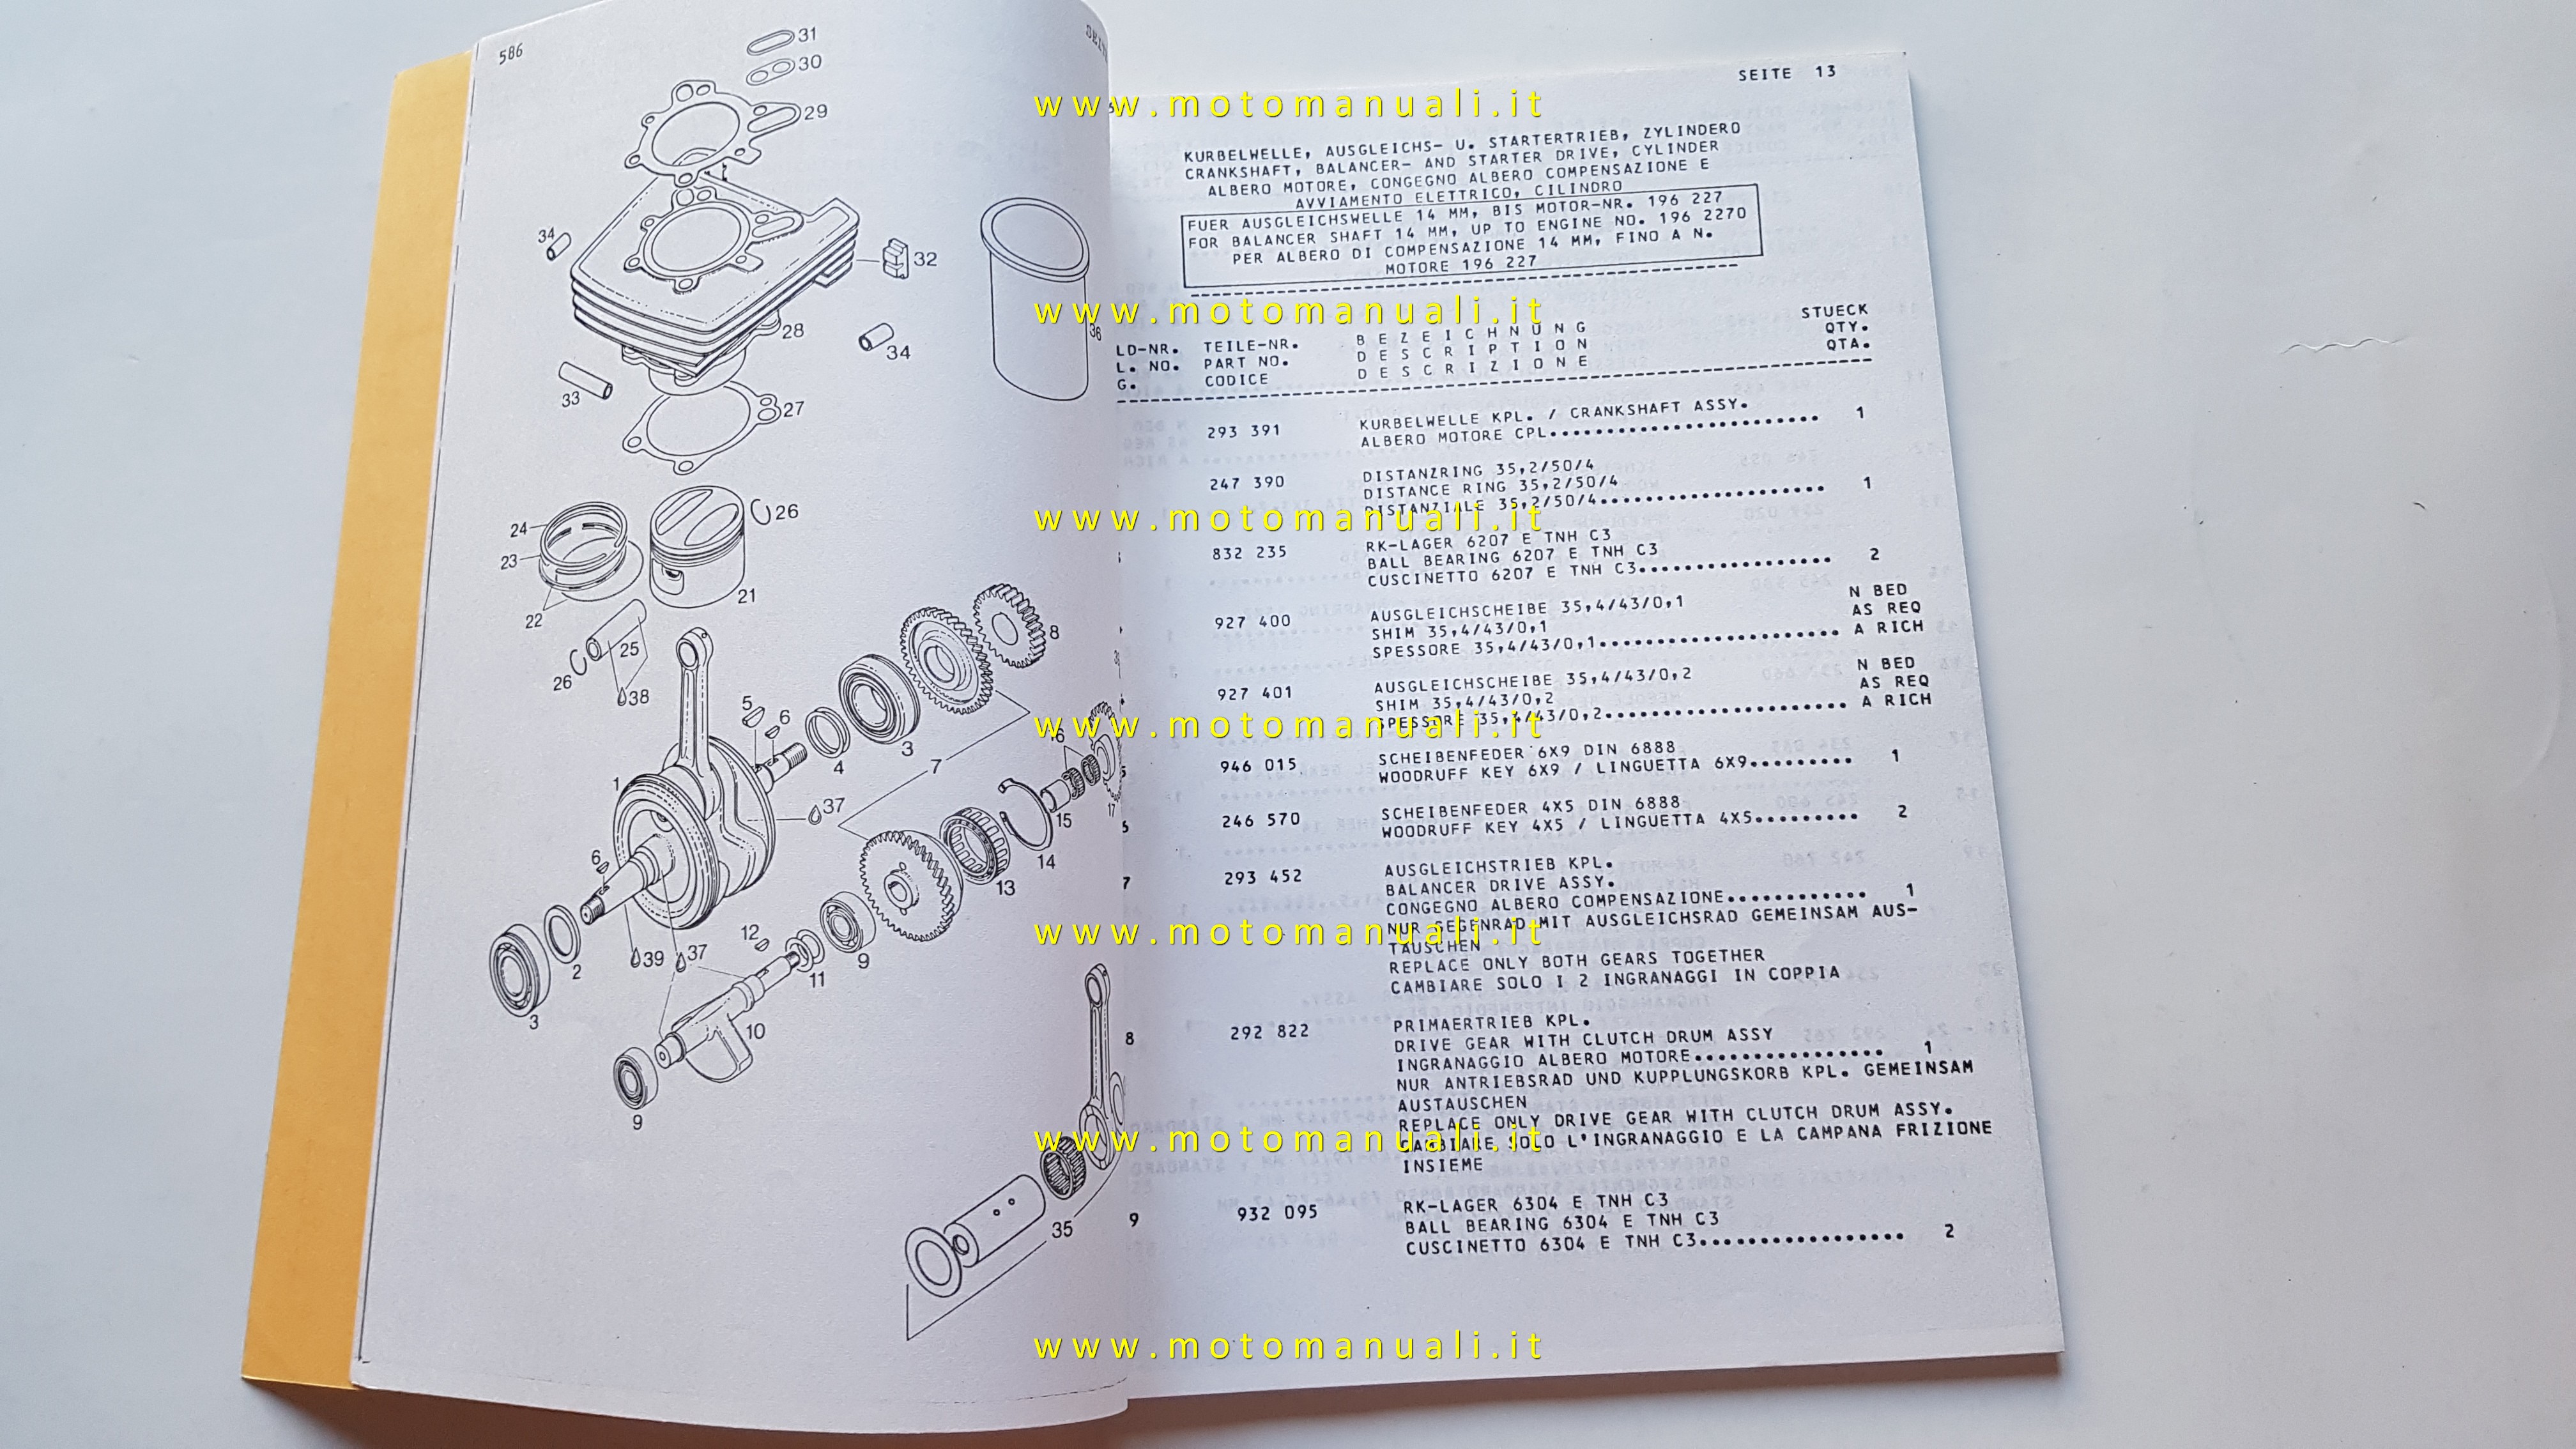 586
31
30
29
34
32
28
34
36
33
27
24
23
22
26
21
25
26
38
8
5
6
3
4
7
16
1
37
17
15
14
6
13
12
9
2
39
37
11
3
10
9
35
SEITE 13
KURBELWELLE, AUSGLEICHS- U. STARTERTRIEB, ZYLINDERO
CRANKSHAFT, BALANCER- AND STARTER DRIVE, CYLINDER
ALBERO MOTORE, CONGEGNO ALBERO COMPENSAZIONE E
AVVIAMENTO ELETTRICO, CILINDRO
FUER AUSGLEICHSWELLE 14 MM, BIS MOTOR-NR. 196 227
FOR BALANCER SHAFT 14 MM, UP TO ENGINE NO. 196 2270
PER ALBERO DI COMPENSAZIONE 14 MM, FINO A N.
MOTORE 196 227
LD-NR. TEILE-NR. BEZEICHNUNG STUECK
L. NO. PART NO. DESCRIPTION QTY.
G. CODICE DESCRIZIONE QTA.
293 391 KURBELWELLE KPL. / CRANKSHAFT ASSY.
ALBERO MOTORE CPL........................ 1
247 390 DISTANZRING 35,2/50/4
DISTANCE RING 35,2/50/4
DISTANZIALE 35,2/50/4.................... 1
832 235 RK-LAGER 6207 E TNH C3
BALL BEARING 6207 E TNH C3
CUSCINETTO 6207 E TNH C3................. 2
927 400 AUSGLEICHSCHEIBE 35,4/43/0,1 N BED
SHIM 35,4/43/0,1 AS REQ
SPESSORE 35,4/43/0,1..................... A RICH
927 401 AUSGLEICHSCHEIBE 35,4/43/0,2 N BED
SHIM 35,4/43/0,2 AS REQ
SPESSORE 35,4/43/0,2..................... A RICH
946 015 SCHEIBENFEDER 6X9 DIN 6888
WOODRUFF KEY 6X9 / LINGUETTA 6X9......... 1
246 570 SCHEIBENFEDER 4X5 DIN 6888
WOODRUFF KEY 4X5 / LINGUETTA 4X5......... 2
7 293 452 AUSGLEICHSTRIEB KPL.
BALANCER DRIVE ASSY.
CONGEGNO ALBERO COMPENSAZIONE............ 1
NUR GEGENRAD MIT AUSGLEICHSRAD GEMEINSAM AUS-
TAUSCHEN
REPLACE ONLY BOTH GEARS TOGETHER
CAMBIARE SOLO I 2 INGRANAGGI IN COPPIA
8 292 822 PRIMAERTRIEB KPL.
DRIVE GEAR WITH CLUTCH DRUM ASSY
INGRANAGGIO ALBERO MOTORE................ 1
NUR ANTRIEBSRAD UND KUPPLUNGSKORB KPL. GEMEINSAM
AUSTAUSCHEN
REPLACE ONLY DRIVE GEAR WITH CLUTCH DRUM ASSY.
CAMBIARE SOLO L'INGRANAGGIO E LA CAMPANA FRIZIONE
INSIEME
9 932 095 RK-LAGER 6304 E TNH C3
BALL BEARING 6304 E TNH C3
CUSCINETTO 6304 E TNH C3................. 2
www.motomanuali.it
www.motomanuali.it
www.motomanuali.it
www.motomanuali.it
www.motomanuali.it
www.motomanuali.it
www.motomanuali.it